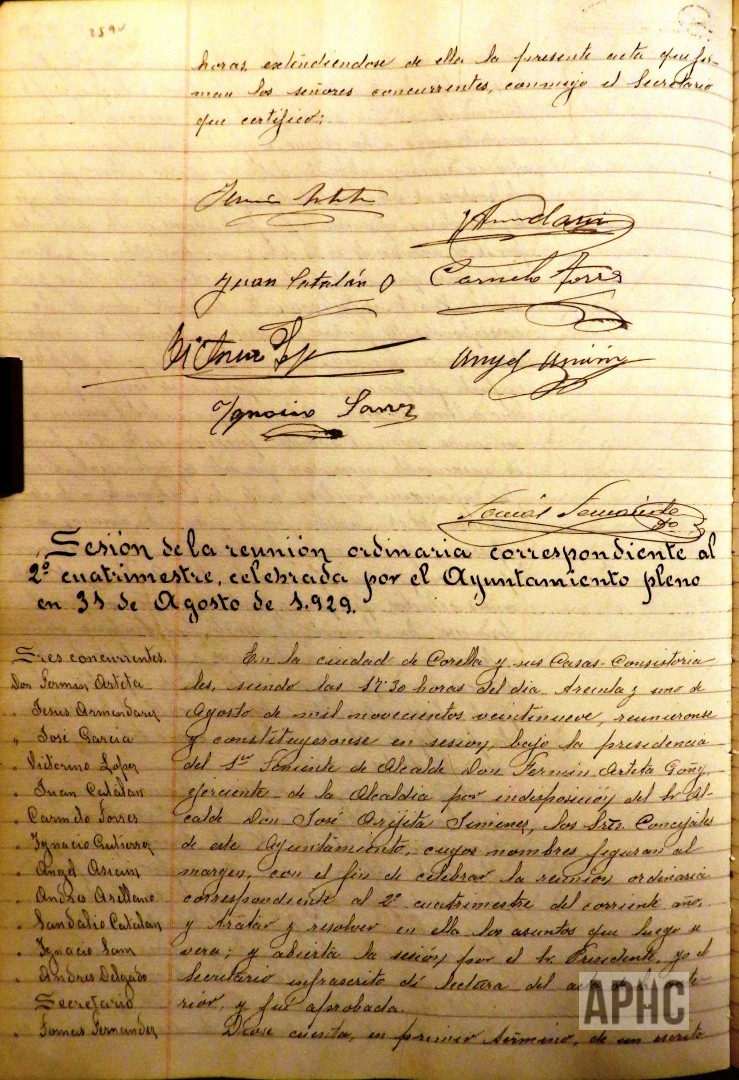 259v
horas, extendiendose de ella la presente acta que fir-
man los señores concurrentes, conmigo el Secretario
que certifico:
Juan Catalán
Carmelo Torres
Victorino
Angel
Ignacio Sanz
Tomás Fernández
Sesión de la reunión ordinaria correspondiente al
2º cuatrimestre, celebrada por el Ayuntamiento pleno
en 31 de Agosto de 1.929.
Sres concurrentes.
Don Fermin Arteta
" Jesus Armendariz
" José Garcia
" Victorino Lopez
" Juan Catalan
" Carmelo Torres
" Ignacio Gutierrez
" Angel
" Andres Arellano
" Sandalio Catalan
" Ignacio Sanz
" Andres Delgado
Secretario
" Tomas Fernandez
En la ciudad de Corella y sus Casas-Consistoria
les, siendo las 17'30 horas del dia treinta y uno de
Agosto de mil novecientos veintinueve, reunieronse
y constituyeronse en sesion, bajo la presidencia
del 1er Teniente de Alcalde Don Fermin Arteta Goñy,
ejerciente de la Alcaldia por indisposición del Sr Al
calde Don José Arjita Jimenez, los Srs. Concejales
de este Ayuntamiento, cuyos nombres figuran al
margen, con el fin de celebrar la reunion ordinaria
correspondiente al 2º cuatrimestre del corriente año,
y tratar y resolver en ella los asuntos que luego se
vera; y abierta la sesión por el Sr. Presidente, yo el
Secretario infrascrito di lectura del acta de la ante
rior, y fué aprobada.
Diose cuenta, en primer término, de un escrito
APHC